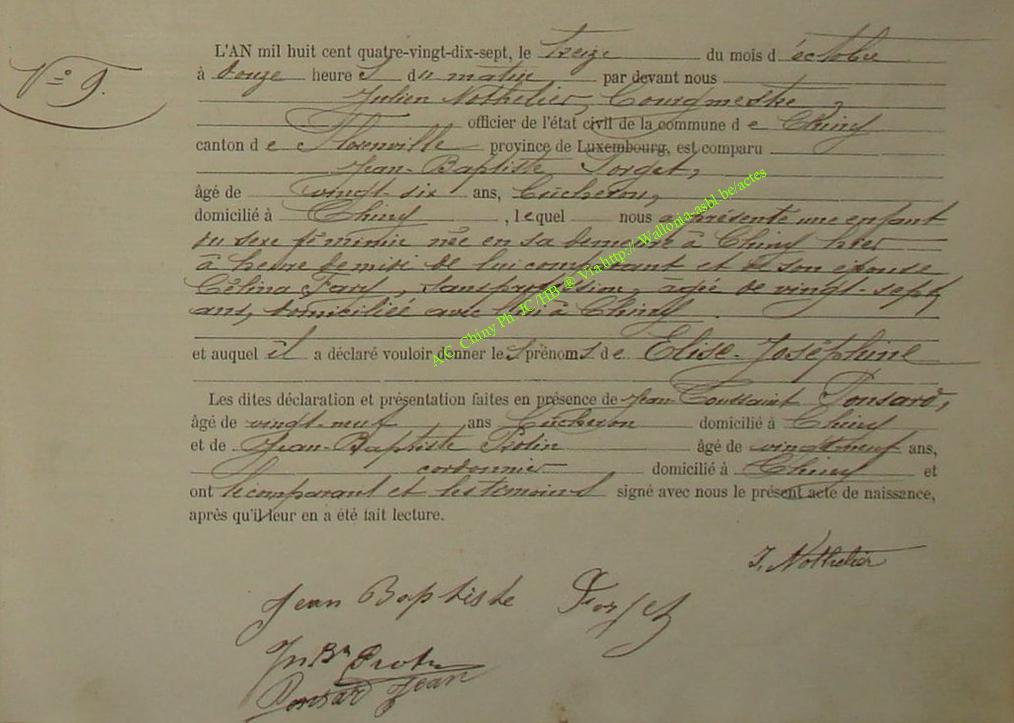 N° 9.
L'AN mil huit cent quatre-vingt-dix-sept, le treize du mois d'octobre
à douze heures du matin, par devant nous
Julien Nothelier, Bourgmestre,
officier de l'état civil de la commune de Chiny
canton de Florenville province de Luxembourg, est comparu
Jean-Baptiste Forget,
âgé de vingt-six ans, bûcheron,
domicilié à Chiny, lequel nous a présenté une enfant
du sexe féminin née en sa demeure à Chiny hier
à heure de midi de lui comparant et de son épouse
Célina Fary, sans profession, âgée de vingt-sept
ans, domiciliée avec lui à Chiny.
et auquel il a déclaré vouloir donner les prénoms de Elise-Joséphine
Les dites déclaration et présentation faites en présence de Jean-Toussaint Ponsard,
âgé de vingt-neuf ans bûcheron domicilié à Chiny
et de Jean-Baptiste Protin âgé de vingt-neuf ans,
cordonnier domicilié à Chiny et
ont le comparant et les témoins signé avec nous le présent acte de naissance,
après qu'il leur en a été fait lecture.
J. Nothelier
Jean Baptiste Forget
Jn Bte Protin
Ponsard Jean
A.C. Chiny Ph JC /HB @ Via http://Wallonia-asbl.be/actes